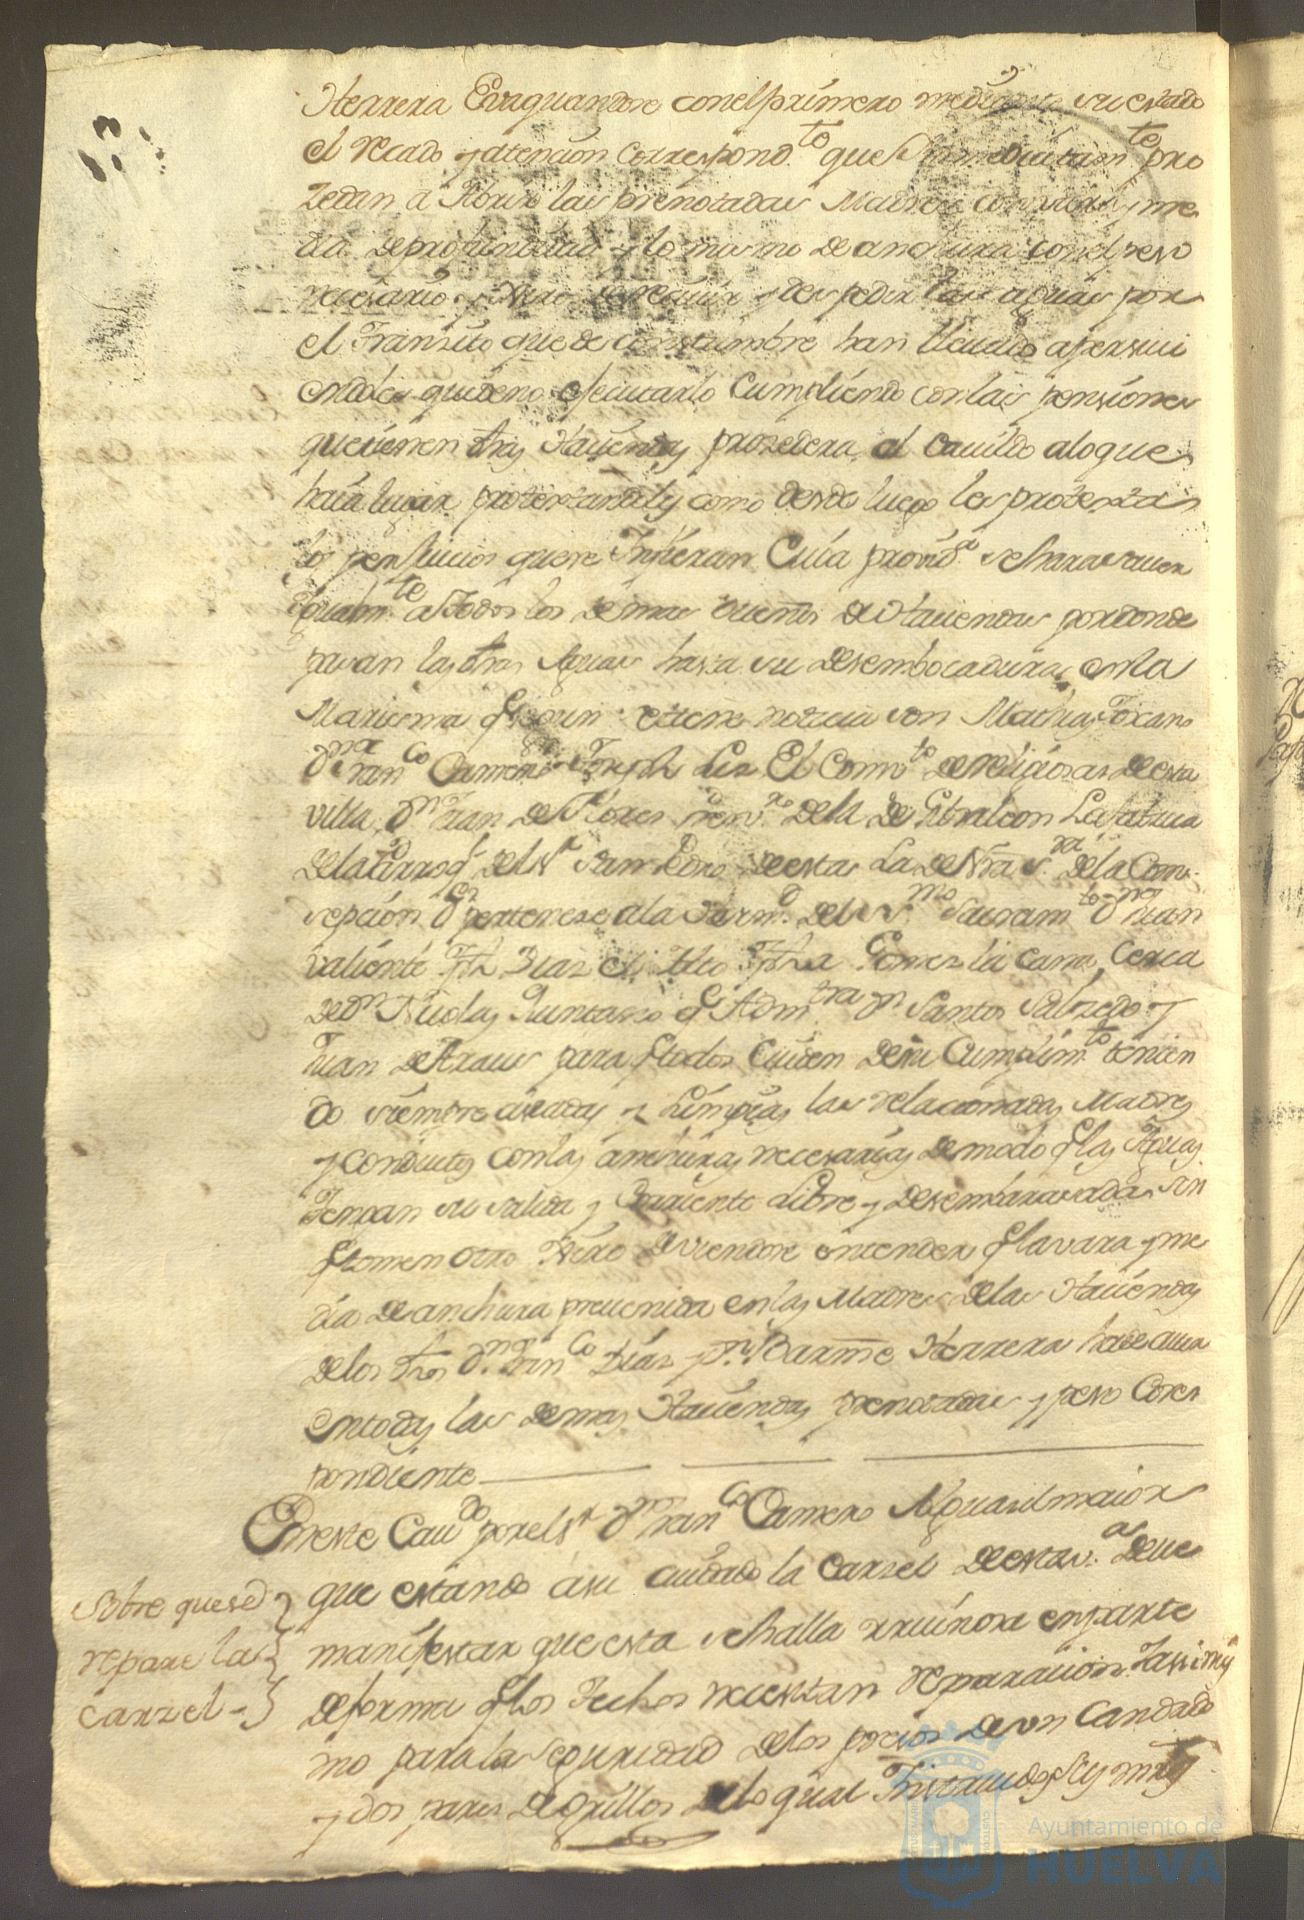 Herrera Evaquandose con el primero mediante su estado
el recado y atencion correspond.te que inmediatam.te pro
zedan a Abrir las prenotadas Madres con vara y me
dia de profundidad y lo mismo de anchura con el peso
necesario y de recivir y despedir las aguas por
el Transito que de constumbre han llevado apersivi
endoles que de no ejecutarlo Cumpliendo con las pensiones
que tienen dhas Haciendas prozedera el Cavildo a lo que
haia lugar protextandoles como desde luego les protexta
los perjuicios que se Infieran Cuia provid.a se hara saver
igualm.te a todos los demas dueños de Haciendas por donde
pasan las dhas Aguas hasta su desembocadura en la
Marisma q segun se tiene noticia son Mathias Toscano
D.n Fran.co Camero Joseph Liz El Conv.to de religiosas de esta
villa, D.n Juan de Flores Presv.ro de la de Gibraleon La fabrica
de la Parroq.l del S.r San Pedro de esta La de Nra S.ra de la Con-
sepcion q pertenese a la Herm.d del SS.mo Sacram.to D.n Juan
Valiente Diaz el Alto Gomez la cama, Cerca
de D.n Nicolas Quintano q Adm.tra D.n Santos Salzedo y
Juan de Araus para q todos Cuiden de su Cumplim.to tenien
do siempre aseadas y Limpias las relacionadas Madres
y conductos con las anchuras necesarias de modo q las Aguas
Tengan su salida y Corriente Libre y desembarasada sin
q tomen otro deviendose entender q la vara y me
dia de anchura prevenida en las Madres de las Haciendas
de los dhos D.n Fran.co Diaz y D.n Barme Herrera ha de aver
en todas las demas Haciendas prenotadas y peso Corres
pondiente
En este Cav.do por el S.r D.n Fran.co Camero Alguasil maior
que estando a su cuidado la Carzel de esta v.a deve
manifestar que esta se halla rruinosa en parte
de forma q los Techos necesitan reparacion Y assimis
mo para la seguridad de los presos de un Candado
y dos pares de grillos de lo qual
Sobre que se
repare la
Carzel
Ayuntamiento de
HUELVA